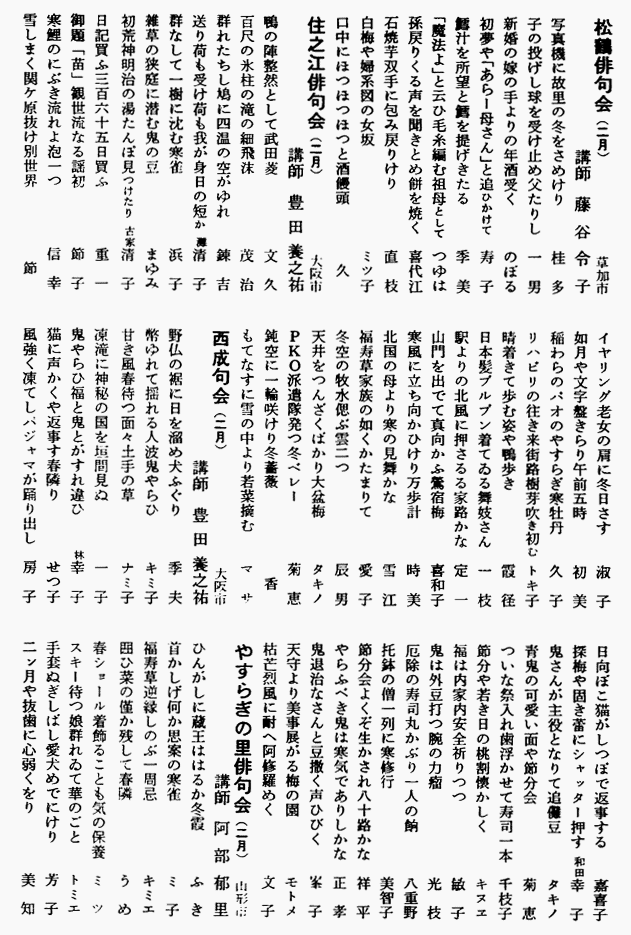 松鶴俳句会(二月)
講師 藤谷令子 草加市
写真機に故里の冬をさめけり 桂多
子の投げし球を受け止め父たりし 一男
新婚の嫁の手よりの年酒受く のぼる
初夢や「あらー母さん」と追ひかけて 寿子
鱈汁を所望と鱈を提げきたる 季美
「魔法よ」と云ひ毛糸編む祖母として つゆは
孫戻りくる声を聞きとめ餅を焼く 喜代江
石焼芋双手に包み戻りけり 直枝
白梅や婦系図の女坂 ミツ子
口中にほつほつほつと酒饅頭 久
住之江俳句会(二月) 大阪市
講師 豊田養之祐
鴨の陣整然として武田菱 文久
百尺の氷柱の滝の細飛沫 茂治
群れたちし鳩に四温の空がゆれ 錬吉
送り荷も受け荷も我が身日の短か 灘清子
群なして一樹に沈む寒雀 浜子
雑草の狭庭に潜む鬼の豆 まゆみ
初荒神明治の湯たんぽ見つけたり 古家清子
日記買ふ三百六十五日買ふ 重一
御題「苗」観世流なる謡初 節子
寒鯉のにぶき流れよ泡一つ 信幸
雪しまく関ケ原抜け別世界 節
イヤリング老女の肩に冬日さす 淑子
如月や文字盤きらり午前五時 初美
稲わらのパオのやすらぎ寒牡丹 久子
リハビリの往き来街路樹芽吹き初む トキ子
晴着きて歩む姿や鴨歩き 霞径
日本髪ブルブン着てゐる舞妓さん 一枝
駅よりの北風に押さるる家路かな 定一
山門を出でて真向かふ鶯宿梅 喜和子
寒風に立ち向かひけり万歩計 時美
北国の母より寒の見舞かな 雪江
福寿草家族の如くかたまりて 愛子
冬空の牧水偲ぶ雲二つ 辰男
天井をつんざくばかり大盆梅 タキノ
PKO派遣隊発つ冬ベレー 菊恵
鈍空に一輪咲けり冬薔薇 香
もてなすに雪の中より若菜摘む マサ
西成句会(二月) 大阪市
講師 豊田養之祐
野仏の裾に日を溜め犬ふぐり 季夫
幣ゆれて揺れる人波鬼やらひ キミ子
甘き風春待つ面々土手の草 ナミ子
凍滝に神秘の国を垣間見ぬ 一子
鬼やらひ福と鬼とがすれ違ひ 林幸子
猫に声かくや返事す春隣り せつ子
風強く凍てしパジャマが踊り出し 房子
日向ぼこ猫がしつぽで返事する 嘉喜子
探梅や固き蕾にシャッター押す 和田幸子
鬼さんが主役となりて追儺豆 タキノ
青鬼の可愛い面や節分会 菊恵
ついな祭入れ歯浮かせて寿司一本 千枝子
節分や若き日の桃割懐かしく キヌヱ
福は内家内安全祈りつつ 敏子
鬼は外豆打つ腕の力瘤 光枝
厄除の寿司丸かぶり一人の餉 八重野
托鉢の僧一列に寒修行 美智子
節分会よくぞ生かされ八十路かな 祥平
やらふべき鬼は寒気でありしかな 正孝
鬼退治なさんと豆撒く声ひびく 峯子
天守より美事展がる梅の園 モトメ
枯芒烈風に耐へ阿修羅めく 文子
やすらぎの里俳句会(二月) 山形市
講師 阿部郁里
ひんがしに蔵王ははるか冬霞 ふき
首かしげ何か思案の寒雀 ミ子
福寿草逆縁しのぶ一周忌 キミエ
囲ひ菜の僅か残して春隣 うめ
春ショール着飾ることも気の保養 ミツ
スキー待つ娘群れゐて華のごと トミエ
手套ぬぎしばし愛犬めでにけり 芳子
二ヶ月や抜歯に心弱くをり 美知